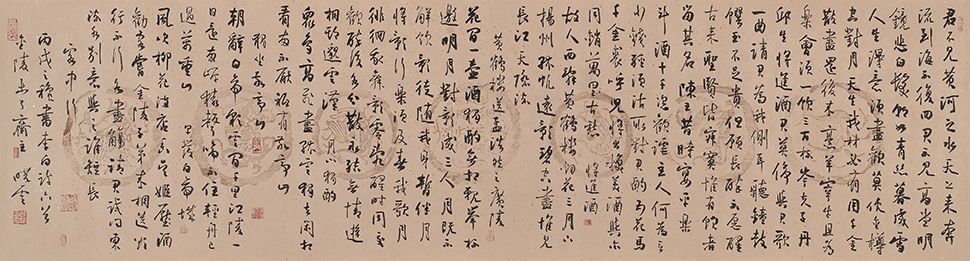 君不見黃河之水天上來奔
流到海不復回君不見高堂明
鏡悲白髮朝如青絲暮成雪
人生得意須盡歡莫使金樽
空對月天生我材必有用千金
散盡還復來烹羊宰牛且為
樂會須一飲三百杯岑夫子丹
邱生將進酒君莫停與君歌
一曲請君為我側耳聽鐘鼓
饌玉不足貴但願長醉不願醒
古來聖賢皆寂寞惟有飲者
留其名陳王昔時宴平樂
斗酒十千恣歡謔主人何為言
少錢徑須沽取對君酌五花馬
千金裘呼兒將出換美酒與爾
同銷萬古愁 將進酒
故人西辭黃鶴樓煙花三月下
揚州孤帆遠影碧空盡惟見
長江天際流
黃鶴樓送孟浩然之廣陵
花間一壺酒獨酌無相親舉杯
邀明月對影成三人月既不
解飲影徒隨我身暫伴月
將影行樂須及春我歌月
徘徊我舞影零亂醒時同交
歡醉後各分散永結無情遊
相期邈雲漢 月下獨酌
眾鳥高飛盡孤雲獨去閒相
看兩不厭祇有敬亭山
獨坐敬亭山
朝辭白帝彩雲間千里江陵一
日還兩岸猿聲啼不住輕舟已
過萬重山 早發白帝城
風吹柳花滿店香吳姬壓酒
勸客嘗金陵子弟來相送欲
行不行各盡觴請君試問東
流水別意與之誰短長
客中行
丙戌之秋書李白詩六首